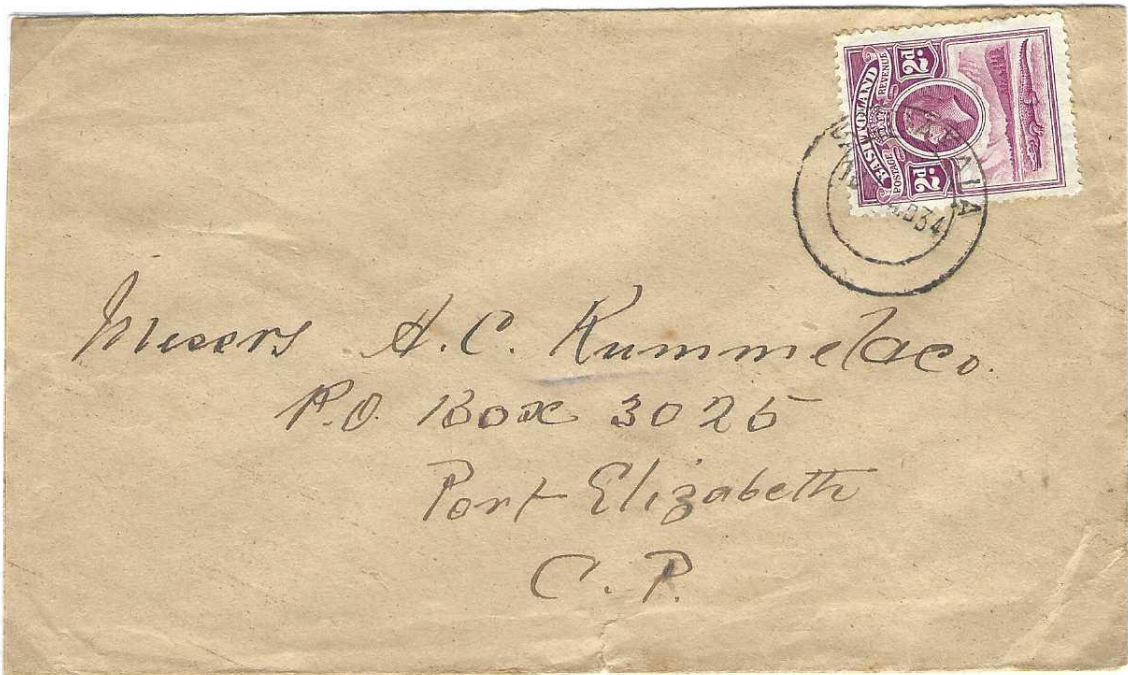 2d.
BASUTOLAND
POSTAGE REVENUE
2d.
34
Messrs H. C. Kummel & Co.
P.O. Box 3025
Port Elizabeth
C. P.